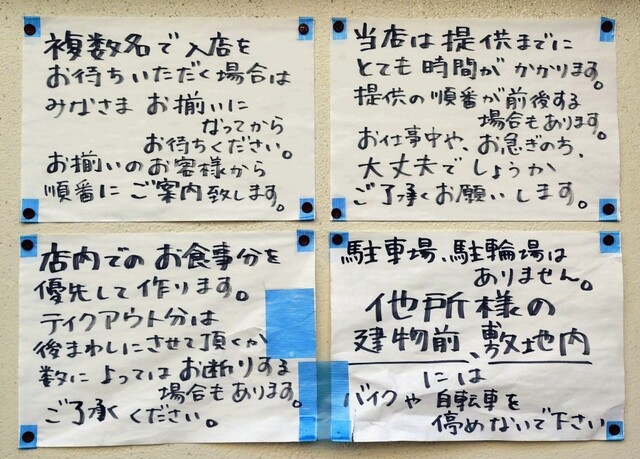 複数名で入店を
お待ちいただく場合は
みなさま お揃いに
なってから
お待ちください。
お揃いのお客様から
順番に ご案内致します。
当店は提供までに
とても時間がかかります。
提供の順番が前後する
場合もあります。
お仕事中や、お急ぎのち、
大丈夫でしょうか
ご了承くお願いします。
店内でのお食事分を
優先して作ります。
テイクアウト分は
後まわしにさせて頂くか
数によってはお断りする
場合もあります。
ご了承ください。
駐車場、駐輪場は
ありません。
他所様の
建物前、敷地内
には
バイクや自転車を
停めないで下さい